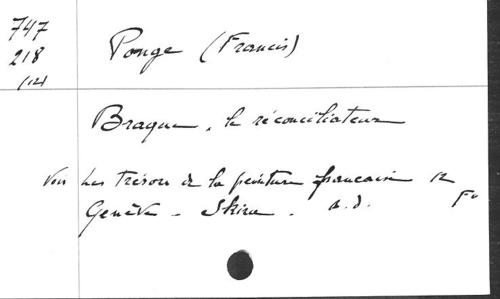 747
218
(12)
Ponge (Francis)
Braque, le réconciliateur
Voir Les Trésors de la peinture française 12
Genève - Skira. s.d. F°